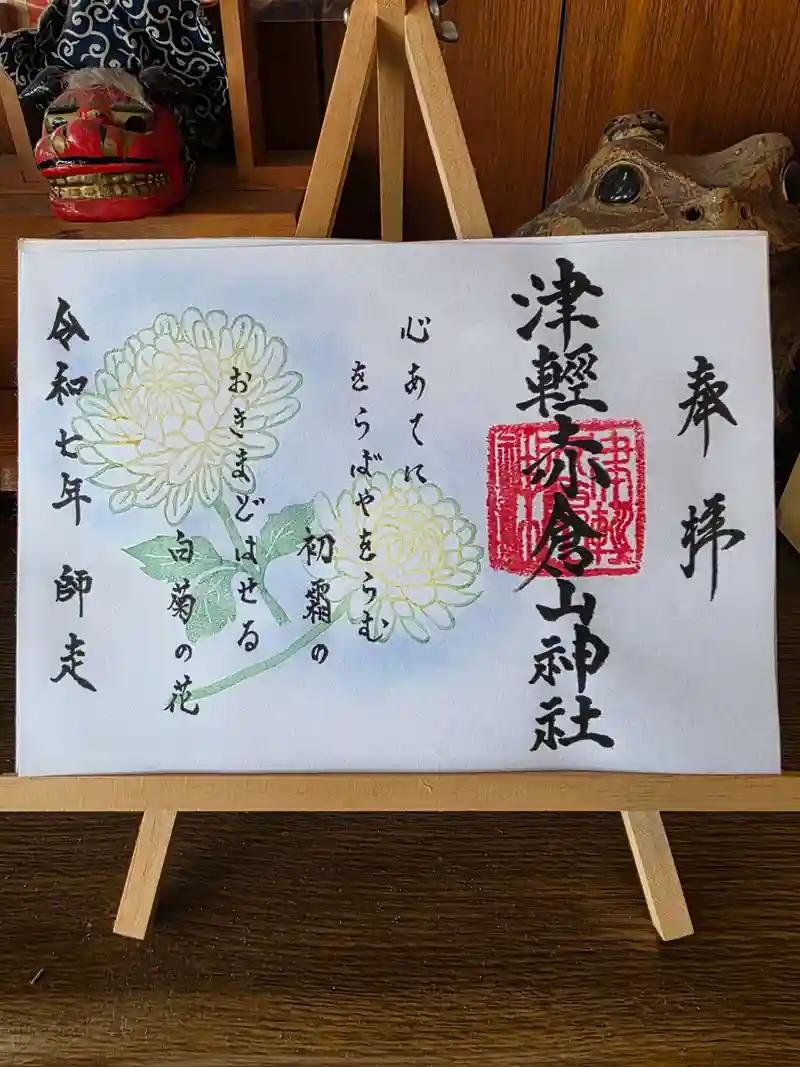 奉拝
津輕赤倉山神社
心あてに
をらばやをらむ
初霜の
おきまどはせる
白菊の花
令和七年 師走